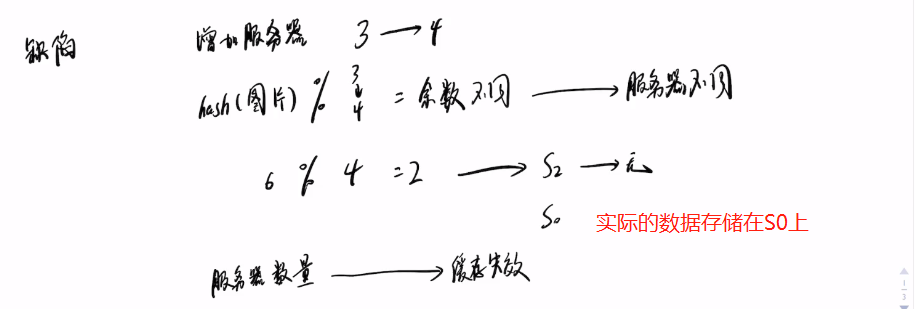 缺陷 增加服务器 3 → 4
hash(图片) % 3 ↓ 4 = 余数不同 → 服务器不同
6 % 4 = 2 → S2 → 无
S0 实际的数据存储在S0上
服务器数量 → 缓存失效
1
3